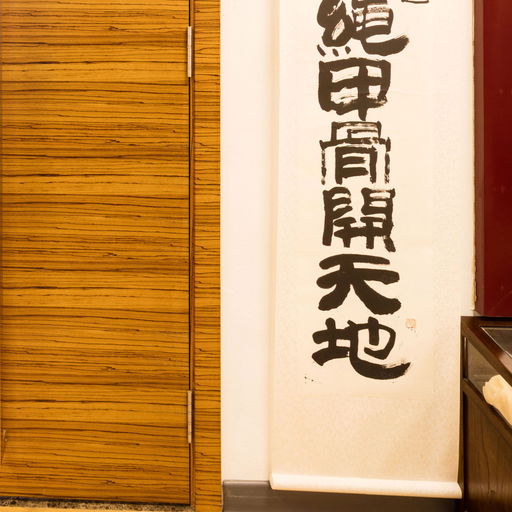 繩甲骨開天地